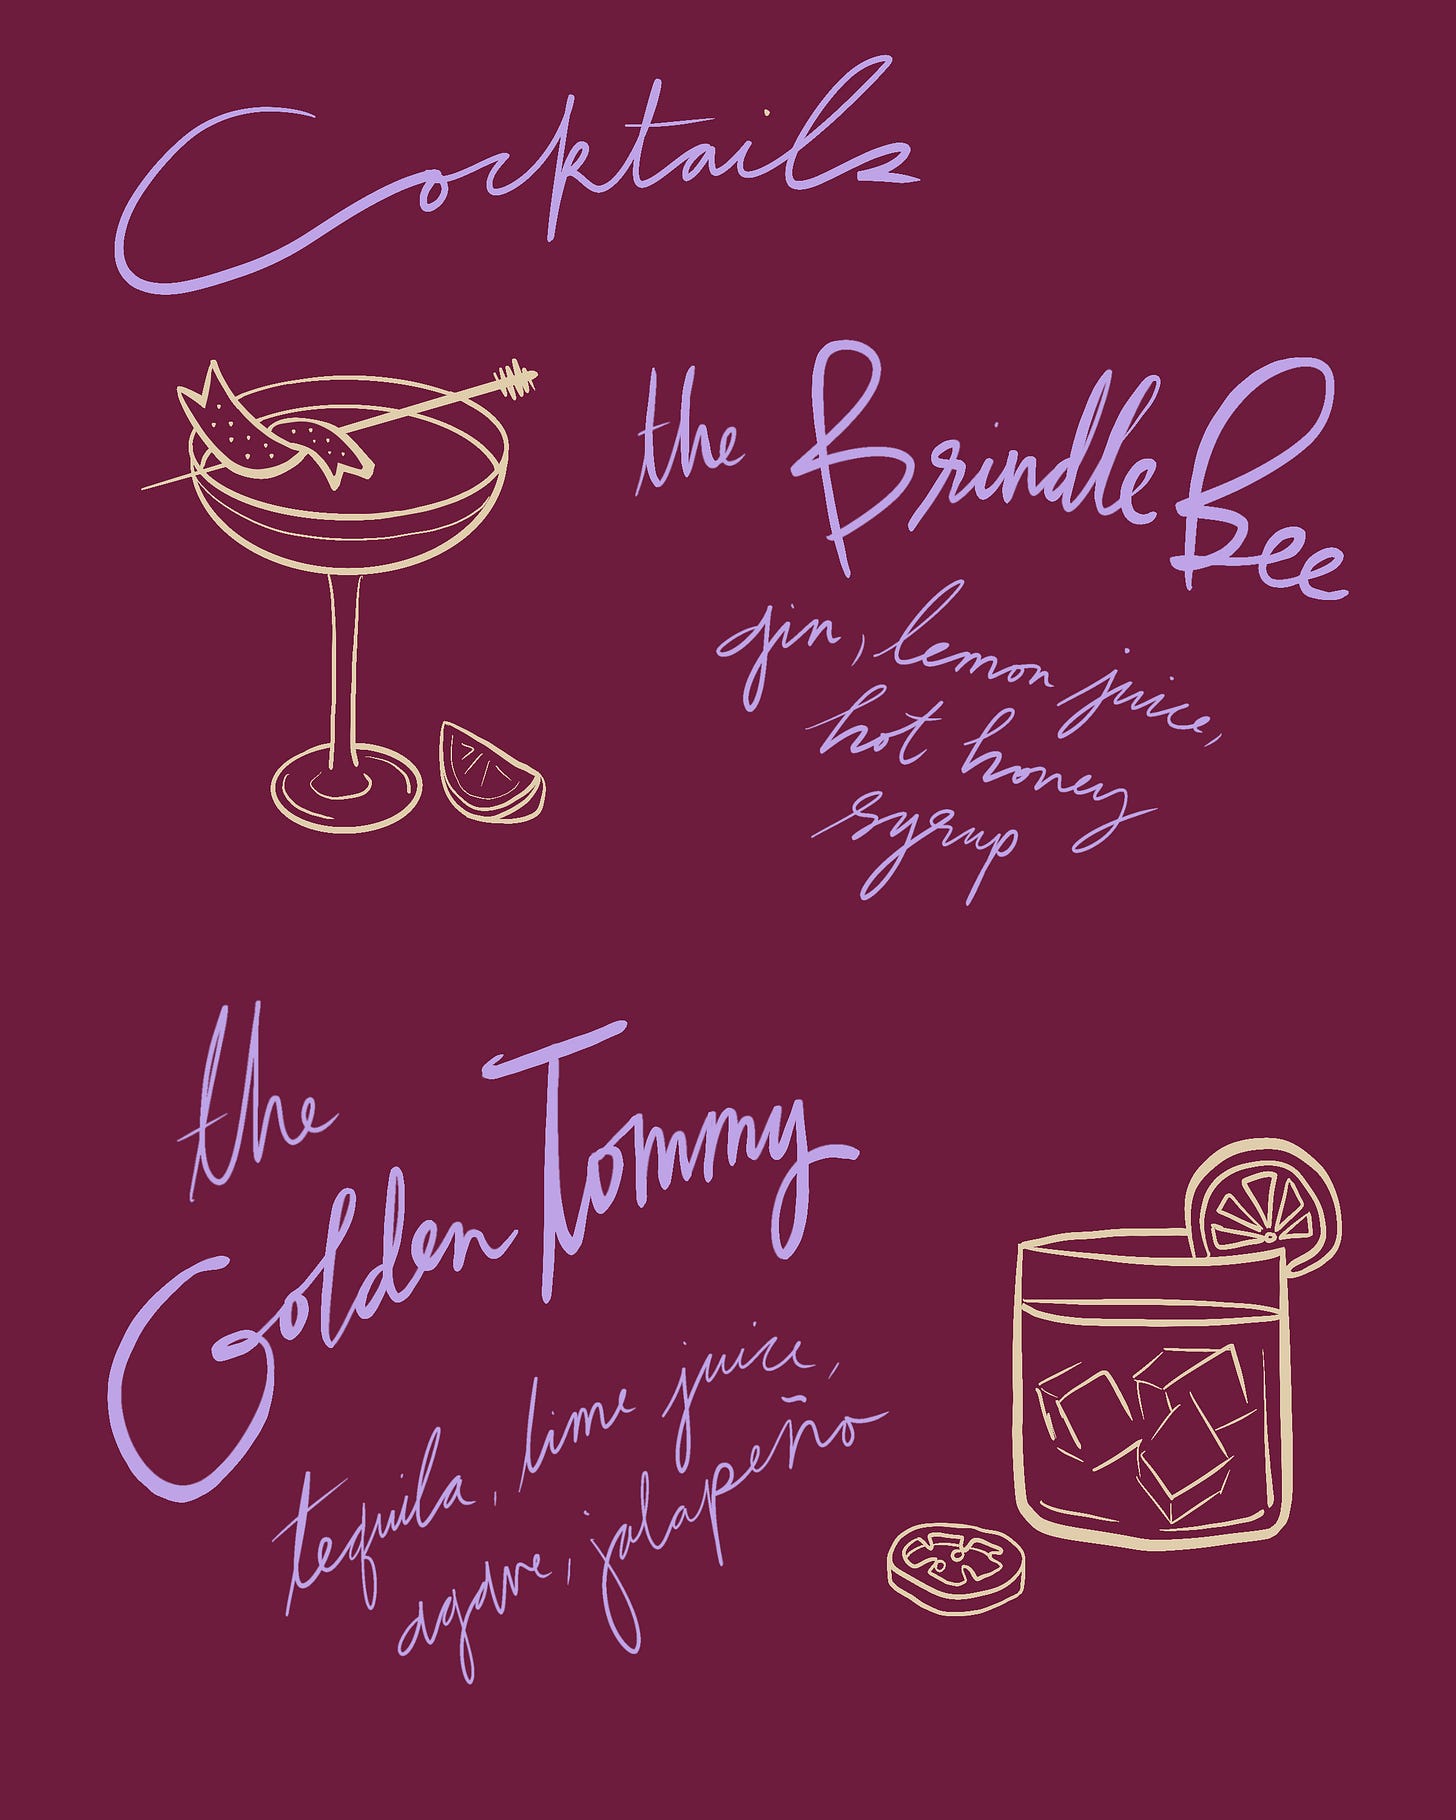 Cocktails
the Brindle Bee
gin, lemon juice,
hot honey
syrup
the
Golden Tommy
tequila, lime juice,
agave, jalapeño